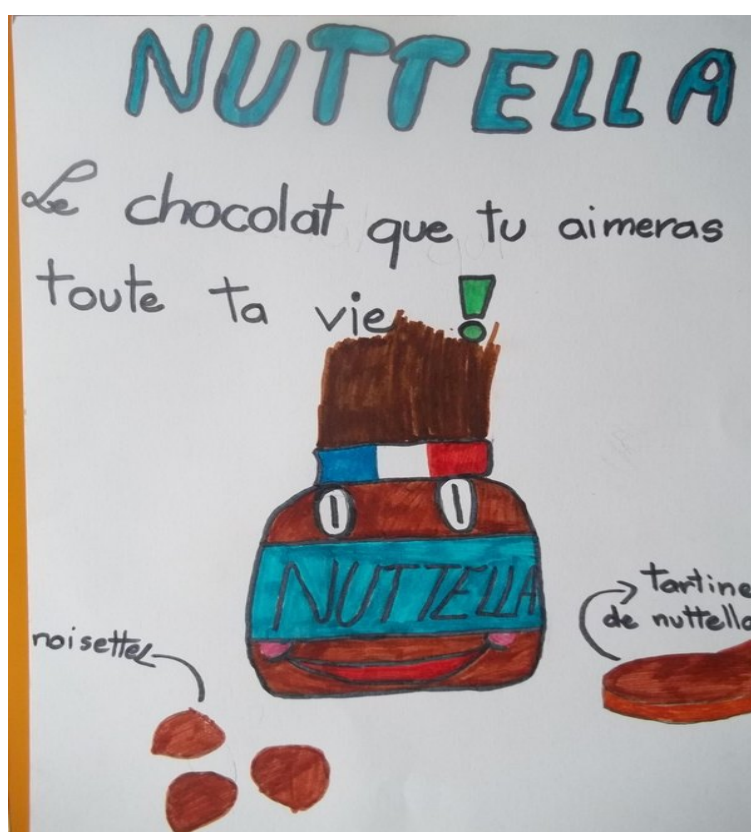 NUTTELLA
Le chocolat que tu aimeras
toute ta vie !
NUTTELLA
noisettes
tartine
de nuttella